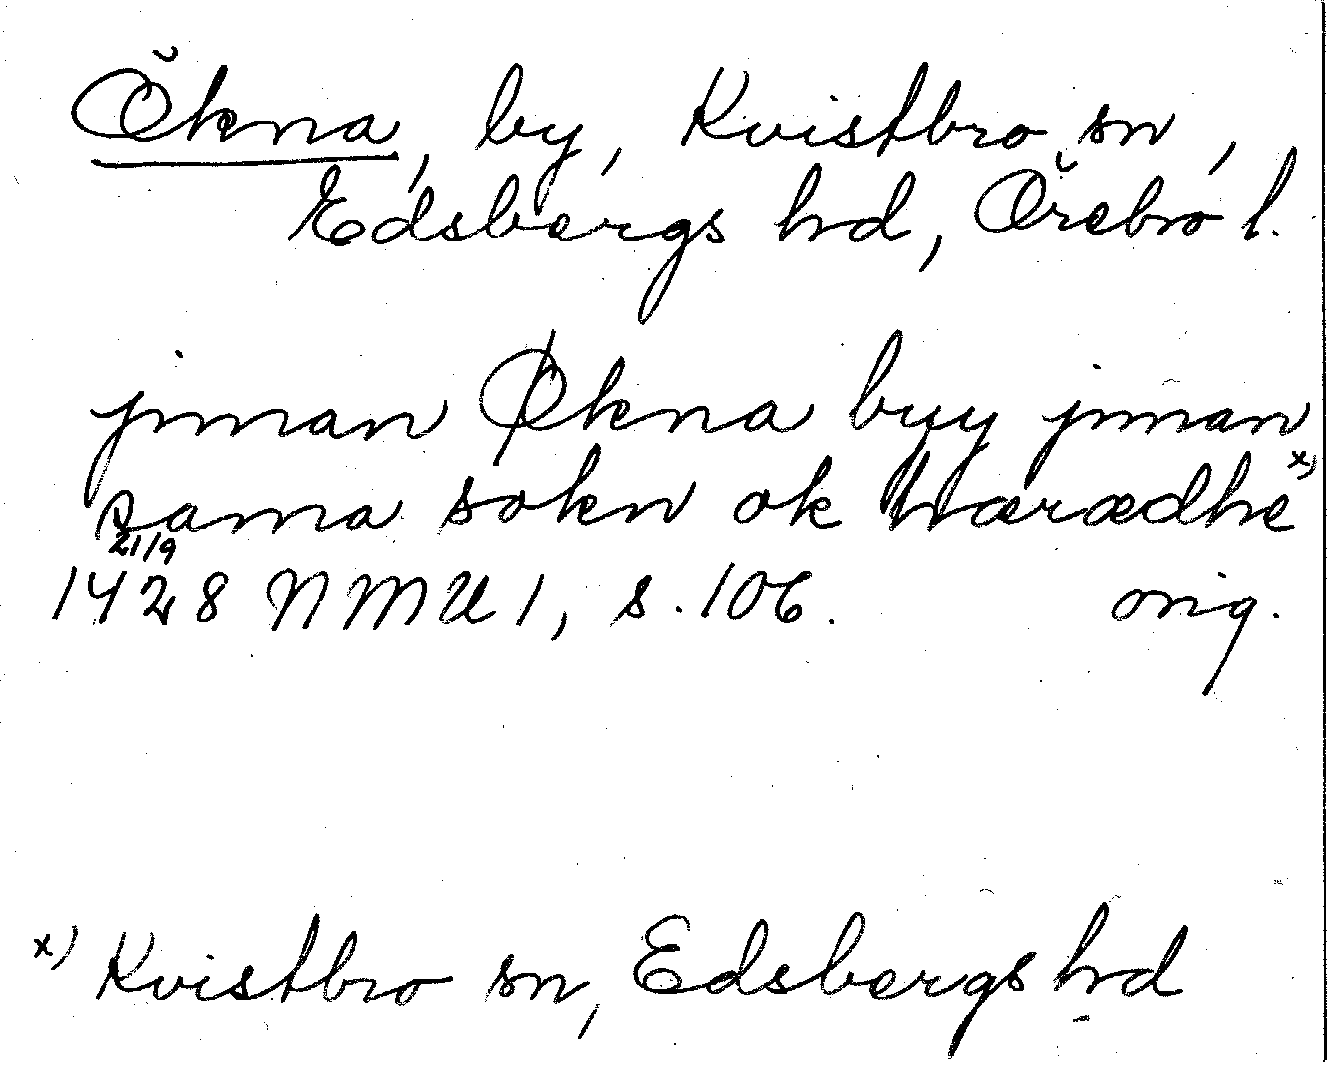 Ökna, by, Kvistbro sn,
Edsbergs hd, Örebro l.
jnnan Økna byy jnnan
sama sokn ok hærædhe x)
21/9
1428 NMU 1, s. 106. orig.
x) Kvistbro sn, Edsbergs hd